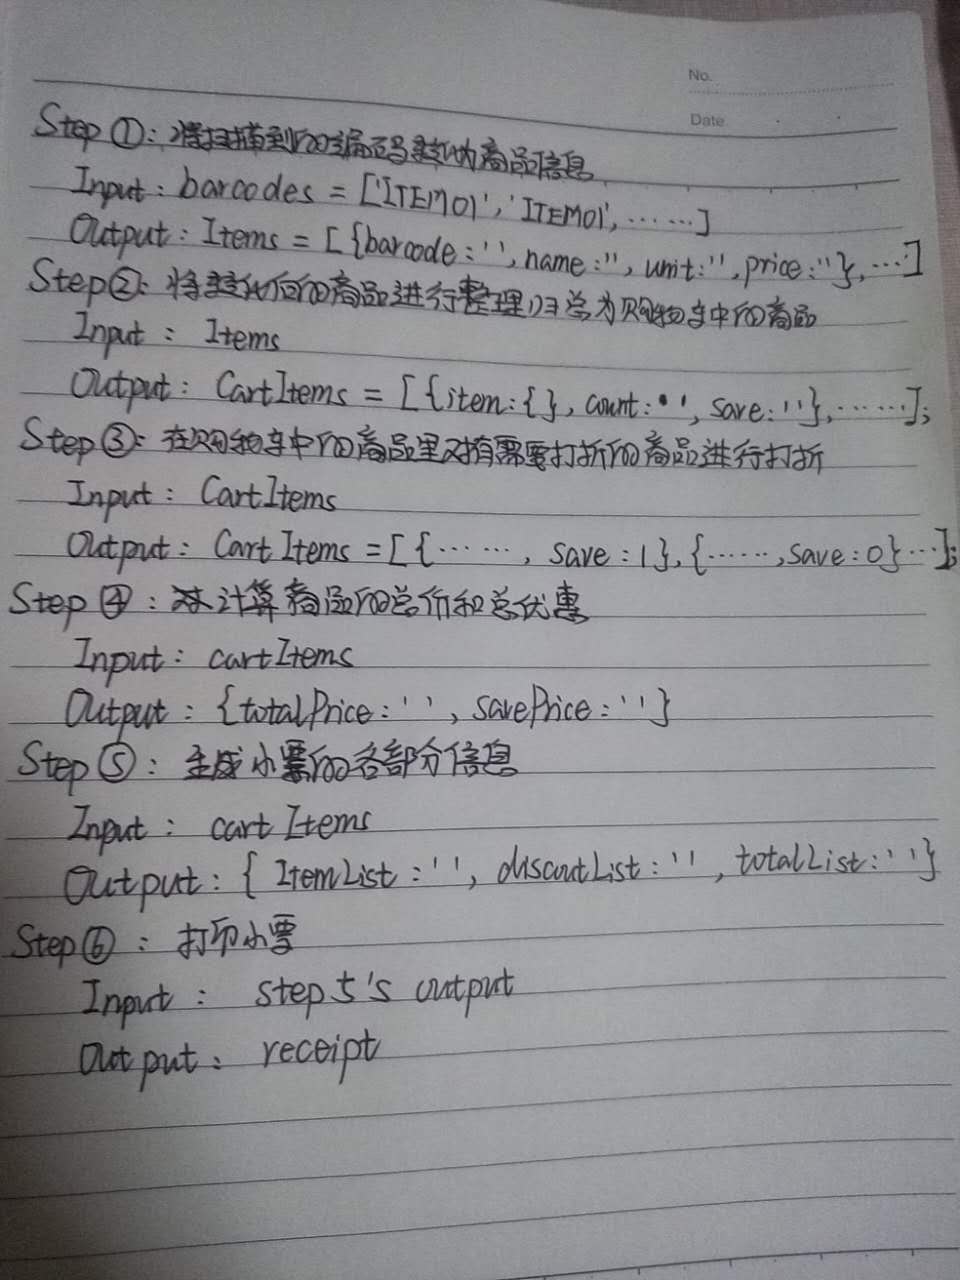 No.
Date
Step ①: 将扫描到的编码变为商品信息
Input: barcodes = ['ITEM01', 'ITEM01', ……]
Output: Items = [{barcode:'', name:'', unit:'', price:''}, …]
Step②: 将变化后的商品进行整理归总为购物车中的商品
Input: Items
Output: CartItems = [{item:{}, count:'', save:''}, ……];
Step③: 在购物车中的商品里对有需要打折的商品进行打折
Input: CartItems
Output: CartItems = [{……, save:1}, {……, save:0}…];
Step④: 计算商品的总价和总优惠
Input: cartItems
Output: {totalPrice:'', savePrice:''}
Step⑤: 生成小票的各部分信息
Input: cartItems
Output: { ItemList:'', discoutList:'', totalList:''}
Step⑥: 打印小票
Input: step5's output
Output: receipt